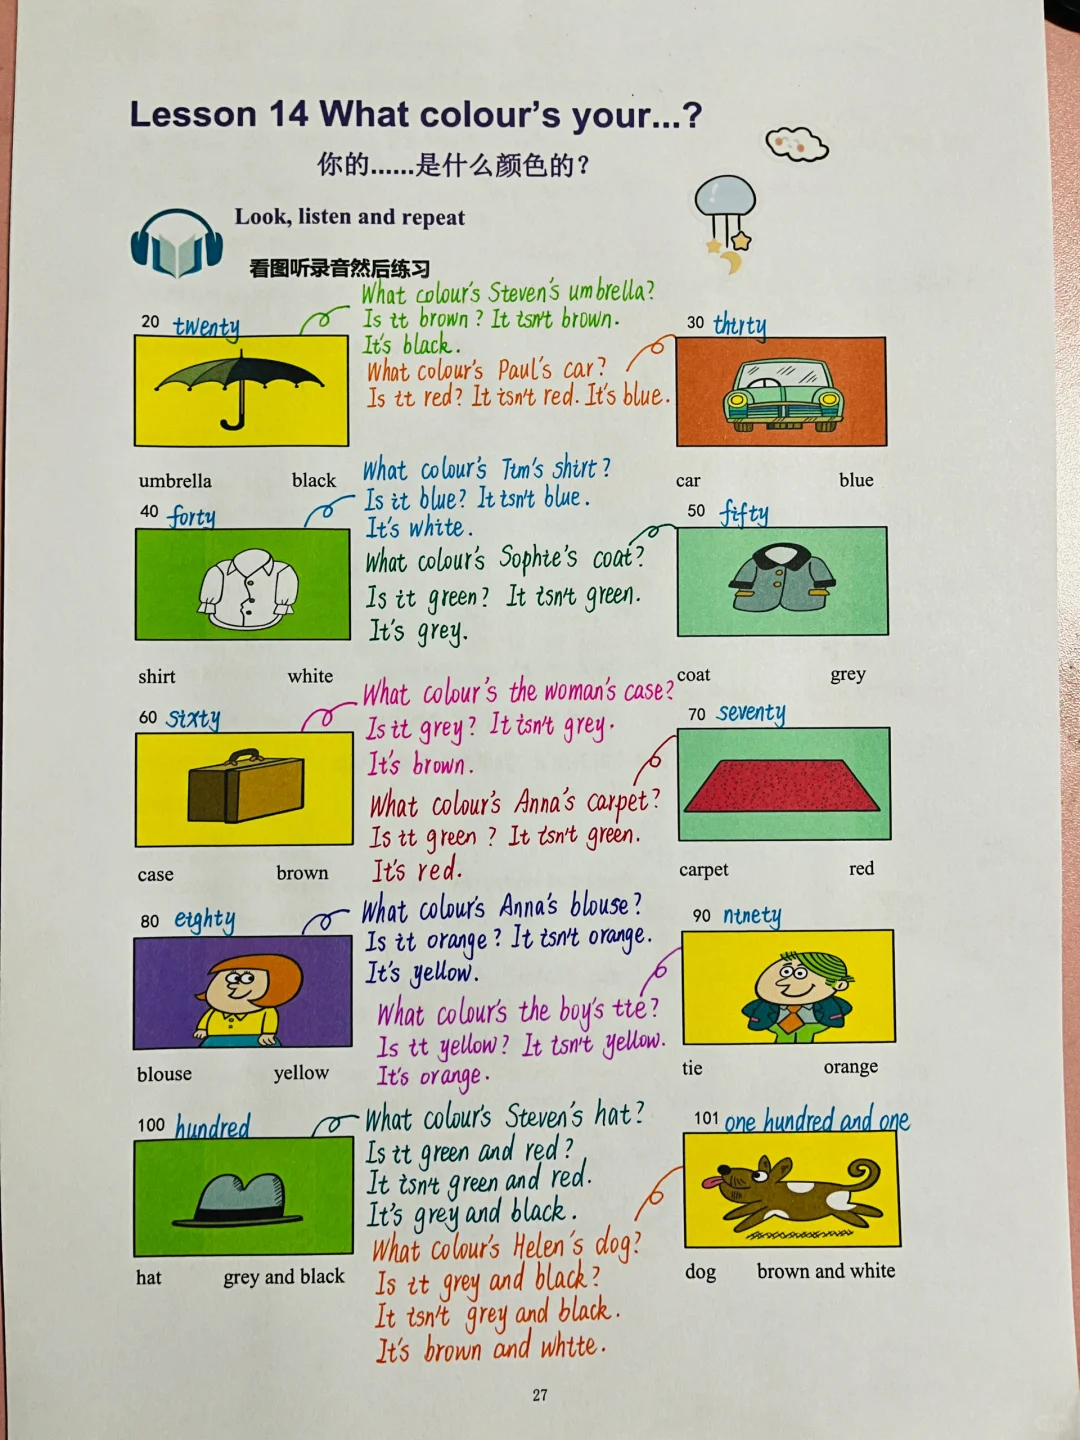 Lesson 14 What colour's your...?
你的......是什么颜色的?
Look, listen and repeat
看图听录音然后练习
20 twenty
What colour's Steven's umbrella?
Is it brown? It isn't brown.
It's black.
umbrella black
30 thirty
What colour's Paul's car?
Is it red? It isn't red. It's blue.
car blue
40 forty
What colour's Tim's shirt?
Is it blue? It isn't blue.
It's white.
shirt white
50 fifty
What colour's Sophie's coat?
Is it green? It isn't green.
It's grey.
coat grey
60 sixty
What colour's the woman's case?
Is it grey? It isn't grey.
It's brown.
case brown
70 seventy
What colour's Anna's carpet?
Is it green? It isn't green.
It's red.
carpet red
80 eighty
What colour's Anna's blouse?
Is it orange? It isn't orange.
It's yellow.
blouse yellow
90 ninety
What colour's the boy's tie?
Is it yellow? It isn't yellow.
It's orange.
tie orange
100 hundred
What colour's Steven's hat?
Is it green and red?
It isn't green and red.
It's grey and black.
hat grey and black
101 one hundred and one
What colour's Helen's dog?
Is it grey and black?
It isn't grey and black.
It's brown and white.
dog brown and white
27